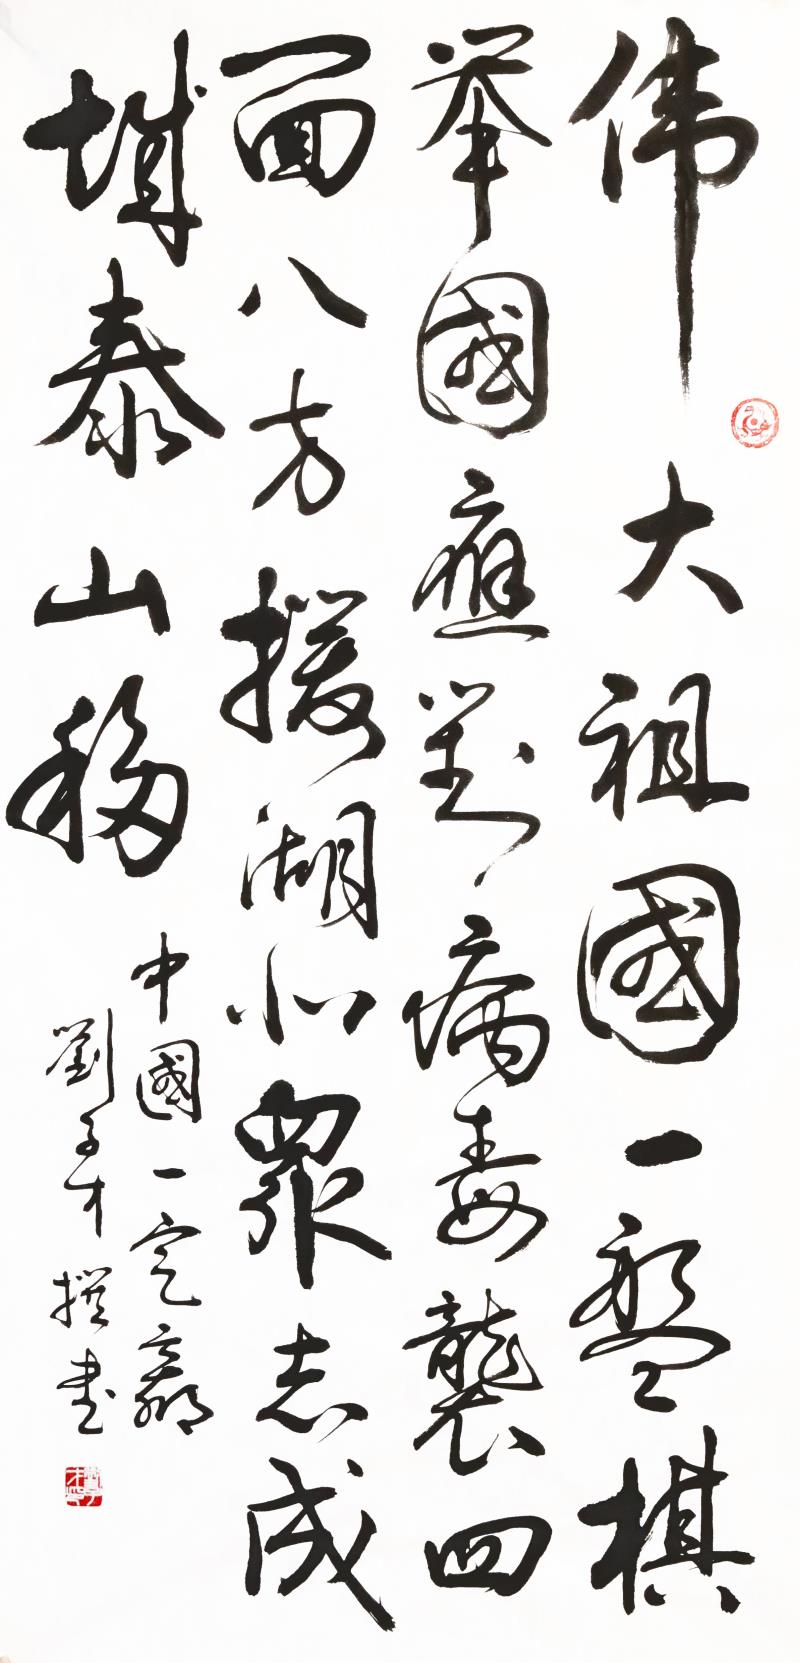 伟大祖國一盤棋
举國應對病毒襲四
面八方援湖北眾志成
城泰山移
中國一定贏
劉子才撰书